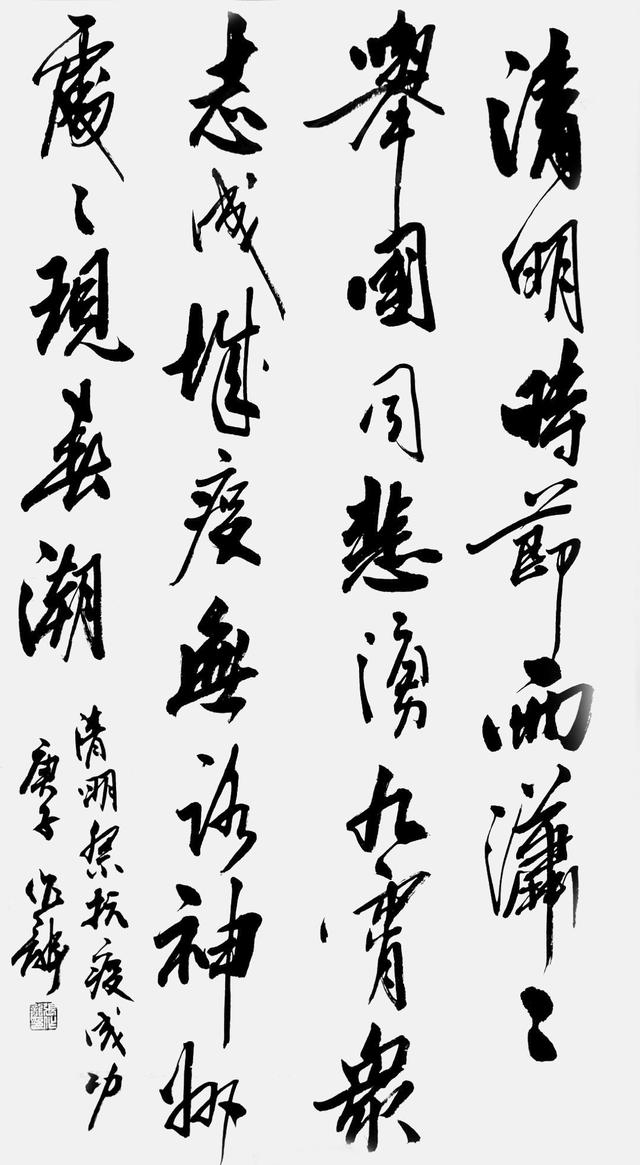 清明時節雨瀟〻
舉國同悲湧九霄眾
志成城疫無路神州
處〻現春潮
清明祭抗疫成功
庚子作